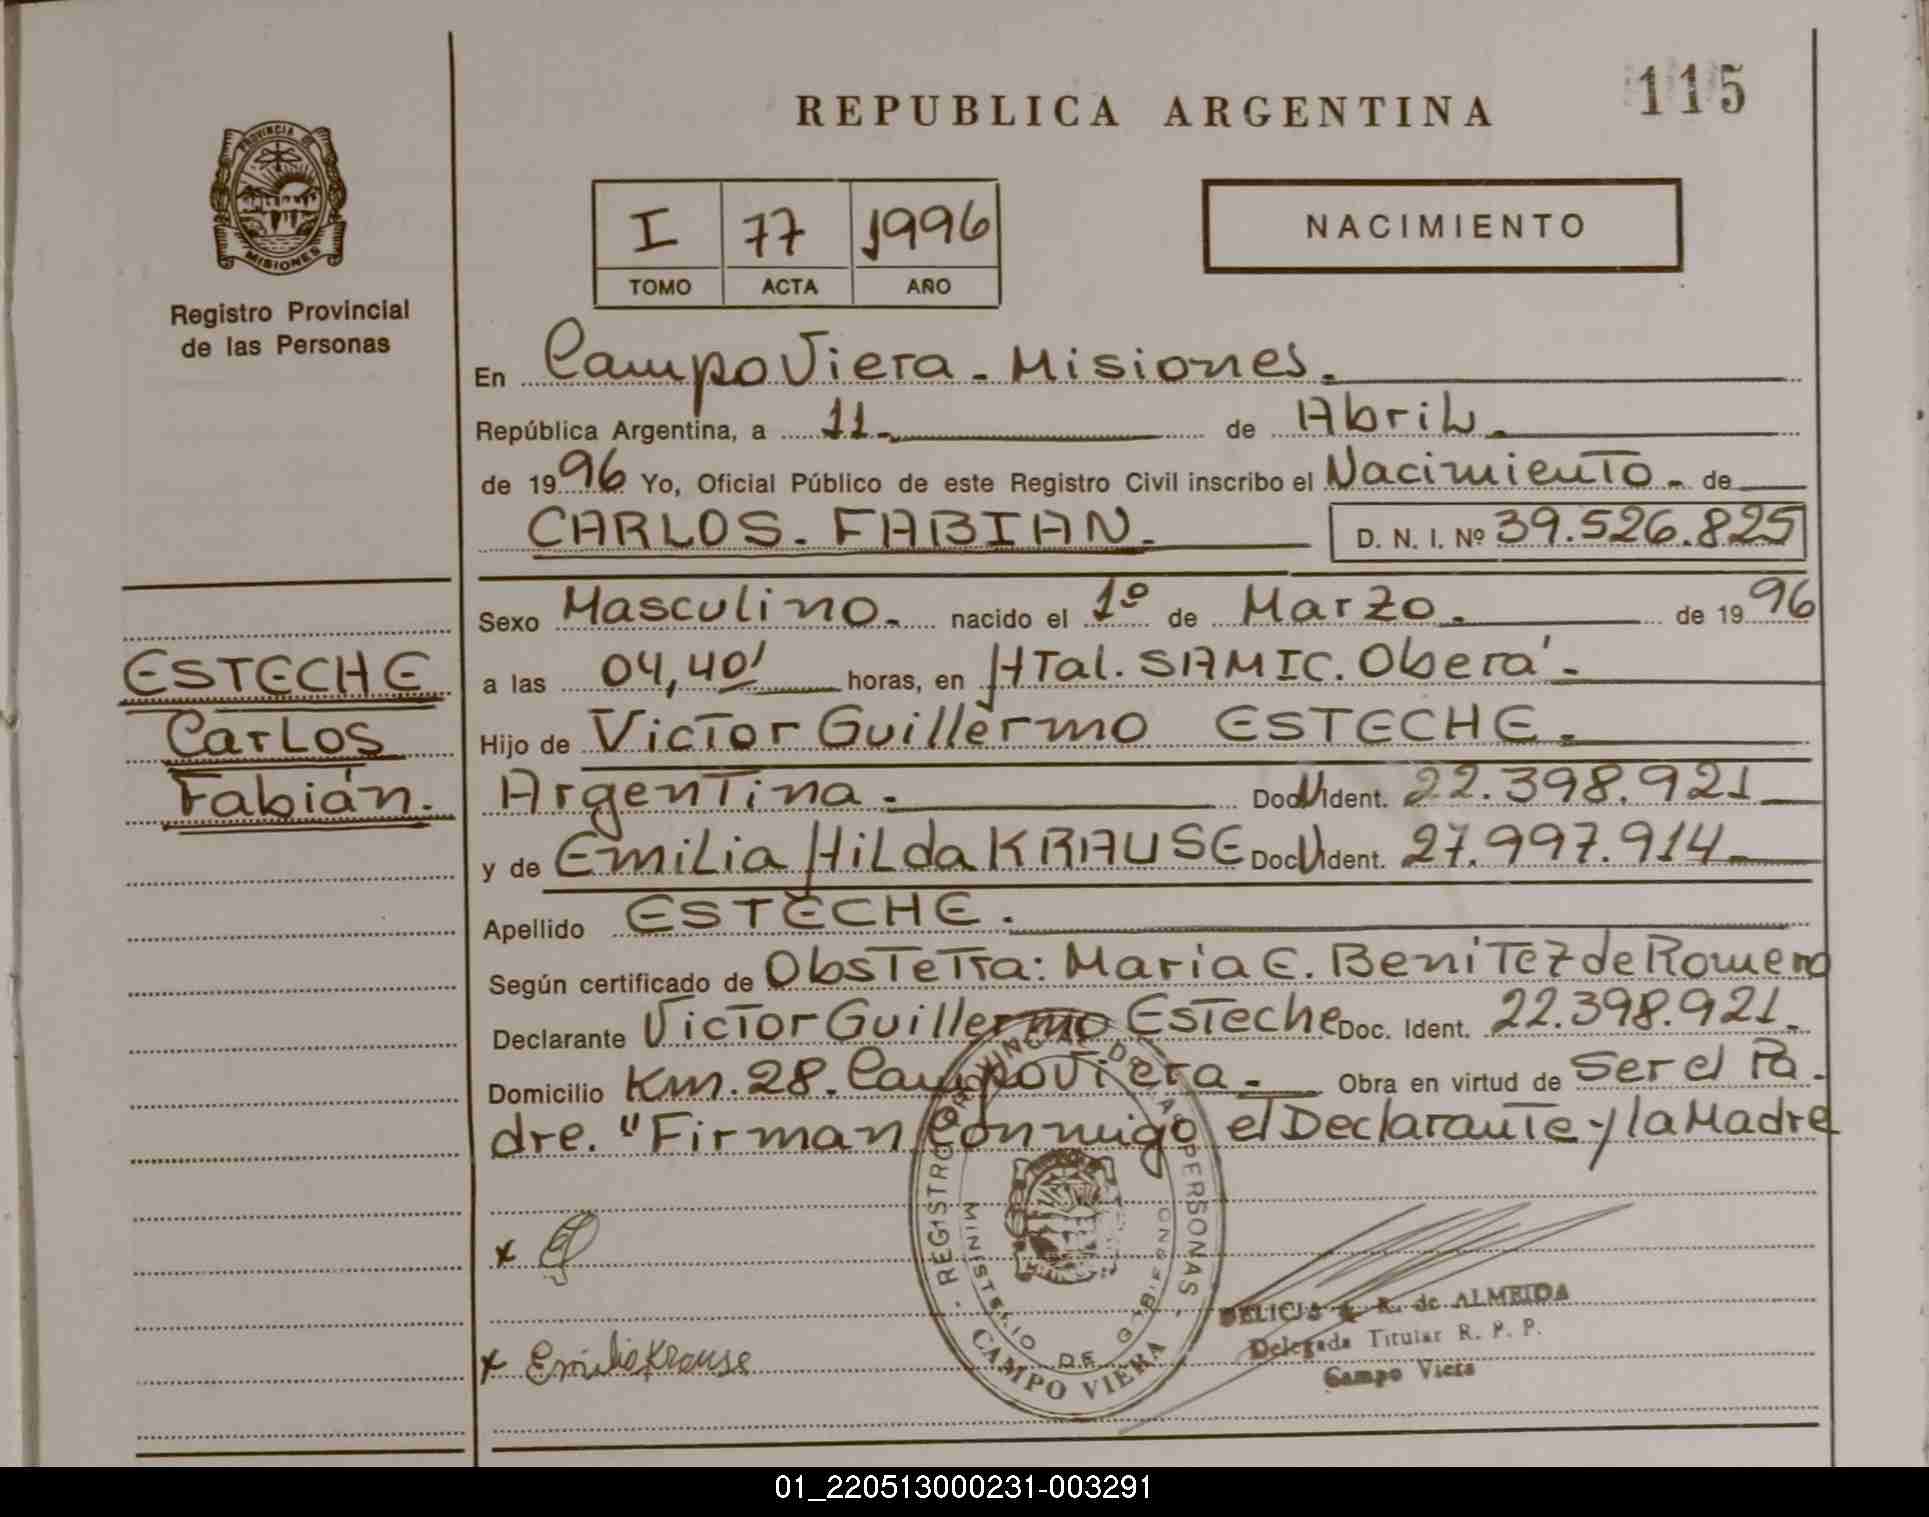 REPUBLICA ARGENTINA
115
PROVINCIA DE
MISIONES
Registro Provincial
de las Personas
I 77 1996
TOMO ACTA AÑO
NACIMIENTO
En Campo Viera - Misiones.
República Argentina, a 11 - de Abril.
de 1996 Yo, Oficial Público de este Registro Civil inscribo el Nacimiento - de
CARLOS - FABIAN. D. N. I. Nº 39.526.825
Sexo Masculino. nacido el 1º de Marzo. de 1996
a las 04,40' horas, en HTal. SAMIC. Oberá -
Hijo de Victor Guillermo ESTECHE.
Argentina. Doc. Ident. 22.398.921
y de Emilia Hilda KRAUSE Doc. Ident. 27.997.914
Apellido ESTECHE.
Según certificado de Obstetra: Maria E. Benitez de Romero
Declarante Victor Guillermo Esteche Doc. Ident. 22.398.921.
Domicilio Km. 28. Campo Viera - Obra en virtud de Ser el Pa-
dre. "Firman conmigo el Declarante y la Madre
ESTECHE
Carlos
Fabián.
x
x Emilia Krause
REGISTRO PROVINCIAL DE LAS PERSONAS
MINISTERIO DE GOBIERNO
CAMPO VIERA
DELICIA R. de ALMEIDA
Delegada Titular R. P. P.
Campo Viera
01_220513000231-003291